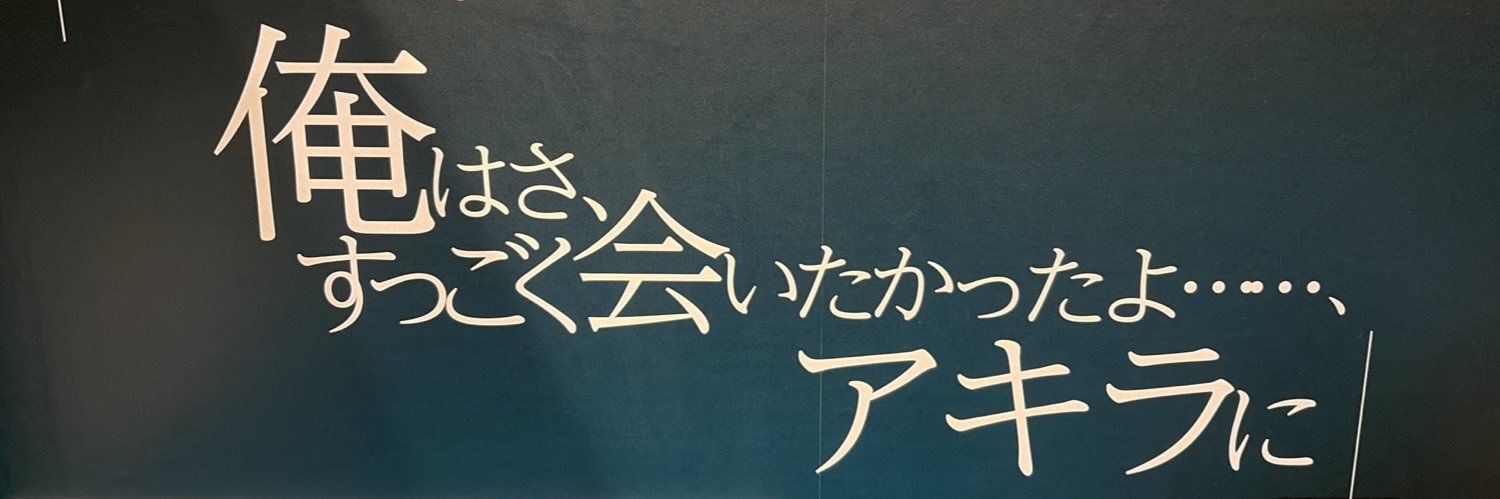 俺はさ、
すっごく会いたかったよ……、
アキラに